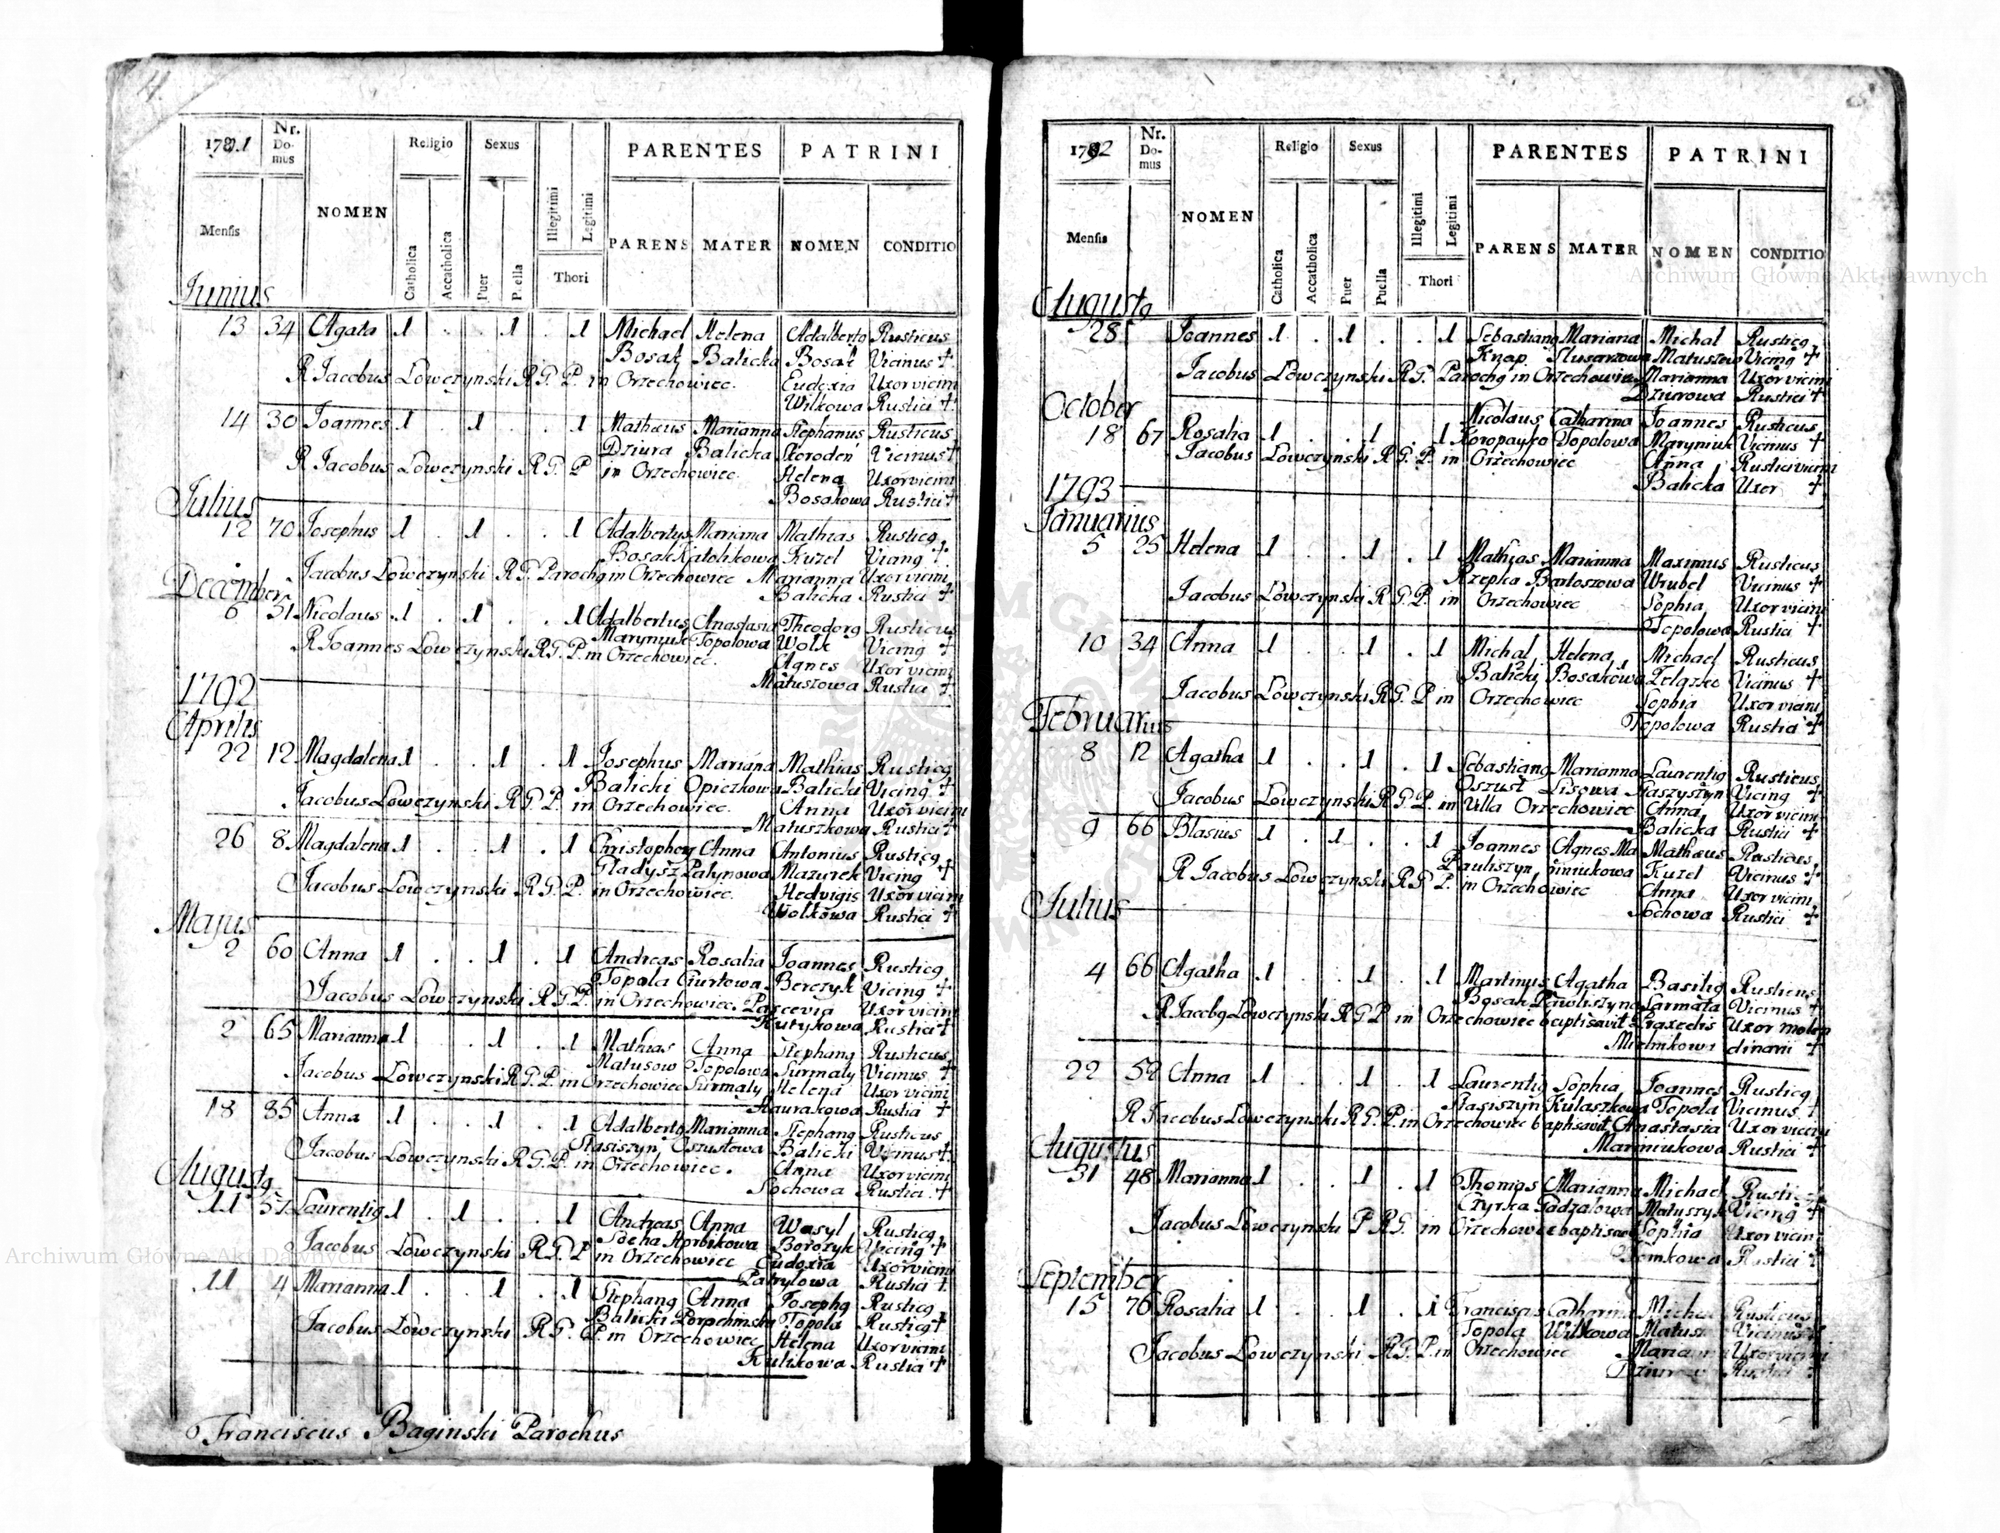 4.
1791 Nr. Domus NOMEN Religio Sexus PARENTES PATRINI
Mensis Catholica Accatholica Puer Puella Illegitimi Legitimi Thori PARENS MATER NOMEN CONDITIO
Junius
13 34 Agata 1 . . 1 . 1 Michael Helena Adalberto Rusticus
Bosak Balicka Bosak Vicinus +
R Jacobus Lowczynski R G. P. in Orzechowiec. Eudoxia Uxor vicini
Wilkowa Rustici +
14 30 Joannes 1 . 1 . . 1 Matheus Marianna Stephanus Rusticus
Dziura Balicka Skoroden Vicinus +
R Jacobus Lowczynski R G. P in Orzechowiec. Helena Uxor vicini
Bosakowa Rustici +
Julius
12 70 Josephus 1 . 1 . . 1 Adalbertus Mariana Mathias Rusticq
Bosak Katolikowa Kuzel Vicinq +
Jacobus Lowczynski R G. Parochq in Orzechowiec Marianna Uxor vicini
Balicka Rustici +
December
6 51 Nicolaus 1 . 1 . . 1 Adalbertus Anastasia Theodorq Rusticus
Maryniuk Topolowa Wolk Vicinq +
R Joannes Lowczynski R G. P. in Orzechowiec. Agnes Uxor vicini
Matuszowa Rustici +
1792
Aprilis
22 12 Magdalena 1 . . 1 . 1 Josephus Mariana Mathias Rusticq
Balicki Opiczkowa Balicki Vicinq +
Jacobus Lowczynski R G. P. in Orzechowiec. Anna Uxor vicini
Matuszkowa Rustici +
26 8 Magdalena 1 . . 1 . 1 Christophory Anna Antonius Rusticq
Gladysz Palynowa Mazurek Vicinq +
Jacobus Lowczynski R G. P. in Orzechowiec. Hedvigis Uxor vicini
Wolkowa Rustici +
Majus
2 60 Anna 1 . . 1 . 1 Andreas Rosalia Joannes Rusticq
Topola Gurtowa Berczyk Vicinq +
Jacobus Lowczynski R G. P. in Orzechowiec. Parcevia Uxor vicini
Kurykowa Rustici +
2 65 Marianna 1 . . 1 . 1 Mathias Anna Stephanq Rusticus
Matusow Topolowa Surmaty Vicinus +
Jacobus Lowczynski R G. P. in Orzechowiec Surmaty Helena Uxor vicini
Haurakowa Rustici +
18 85 Anna 1 . . 1 . 1 Adalberto Marianna Stephanq Rusticus
Stasiszyn Oszustowa Balicki Vicinus +
Jacobus Lowczynski R G. P. in Orzechowiec. Anna Uxor vicini
Sochowa Rustici +
Augustq
11 57 Laurentiq 1 . 1 . . 1 Andreas Anna Wasyl Rusticq
Socha Skrbikowa Borozyk Vicinq +
Jacobus Lowczynski R G. P in Orzechowiec Eudoxia Uxor vicini
Patrylowa Rustici +
11 4 Marianna 1 . . 1 . 1 Stephanq Anna Josephq Rusticq
Balicki Porochinska Topola Rusticq +
Jacobus Lowczynski R G. P. in Orzechowiec Helena Uxor vicini
Kulikowa Rustici +
Franciscus Baginski Parochus
5
1792 Nr. Domus NOMEN Religio Sexus PARENTES PATRINI
Mensis Catholica Accatholica Puer Puella Illegitimi Legitimi Thori PARENS MATER NOMEN CONDITIO
Augustq
28 Joannes 1 . 1 . . 1 Sebastianq Mariana Michal Rusticq
Krzap Slusarzowa Matuszew Vicinq +
Jacobus Lowczynski R G. Parochq in Orzechowiec Marianna Uxor vicini
Dziurowa Rustici +
October
18 67 Rosalia 1 . . 1 . 1 Nicolaus Catharina Joannes Rusticus
Koropayko Topolowa Maryniuk Vicinus +
Jacobus Lowczynski R G. P. in Orzechowiec Anna Rustici vicini
Balicka Uxor +
1793
Januarius
5 25 Helena 1 . . 1 . 1 Mathias Marianna Maximus Rusticus
Rzepka Bartoszowa Wrubel Vicinus +
Jacobus Lowczynski R G. P. in Orzechowiec Sophia Uxor vicini
Topolowa Rustici +
10 34 Anna 1 . . 1 . 1 Michal Helena Michael Rusticus
Balicki Bosakowa Zelazko Vicinus +
Jacobus Lowczynski R G. P. in Orzechowiec Sophia Uxor vicini
Topolowa Rustici +
Februarius
8 12 Agatha 1 . . 1 . 1 Sebastianq Marianna Laurentiq Rusticus
Oszust Lisowa Staszyszyn Vicinq +
Jacobus Lowczynski R G. P. in Villa Orzechowiec Anna Uxor vicini
Balicka Rustici +
9 66 Blasius 1 . 1 . . 1 Joannes Agnes Ma Matheus Rusticus
Pauliszyn piniukowa Kuzel Vicinus +
R Jacobus Lowczynski R G. P. in Orzechowiec Anna Uxor vicini
Sochowa Rustici +
Julius
4 66 Agatha 1 . . 1 . 1 Martinus Agatha Basiliq Rusticus
Bosak Pawliszyna Sarmata Vicinus +
R Jacobq Lowczynski R G P. in Orzechowiec baptisavit Praxedis Uxor molen
Mielnikowa dinarii +
22 52 Anna 1 . . 1 . 1 Laurentiq Sophia Joannes Rusticq
Stasiszyn Kulaszkowa Topola Vicinus +
R Jacobus Lowczynski R G. P. in Orzechowiec baptisavit Anastasia Uxor vicini
Mariniukowa Rustici +
Augustus
31 48 Marianna 1 . . 1 . 1 Thomas Marianna Michael Rusticq
Czyrka Padzalowa Matuszyk Vicinq +
Jacobus Lowczynski P R G. in Orzechowiec baptisavit Sophia Uxor vicini
Rustici +
September
15 76 Rosalia 1 . . 1 . 1 Francisas Catharina Michael Rusticus
Topola Wilkowa Matusz Vicinus +
Jacobus Lowczynski R G. P. in Orzechowiec Marianna Uxor vicini
Rustici +
Archiwum Główne Akt Dawnych
Archiwum Główne Akt Dawnych